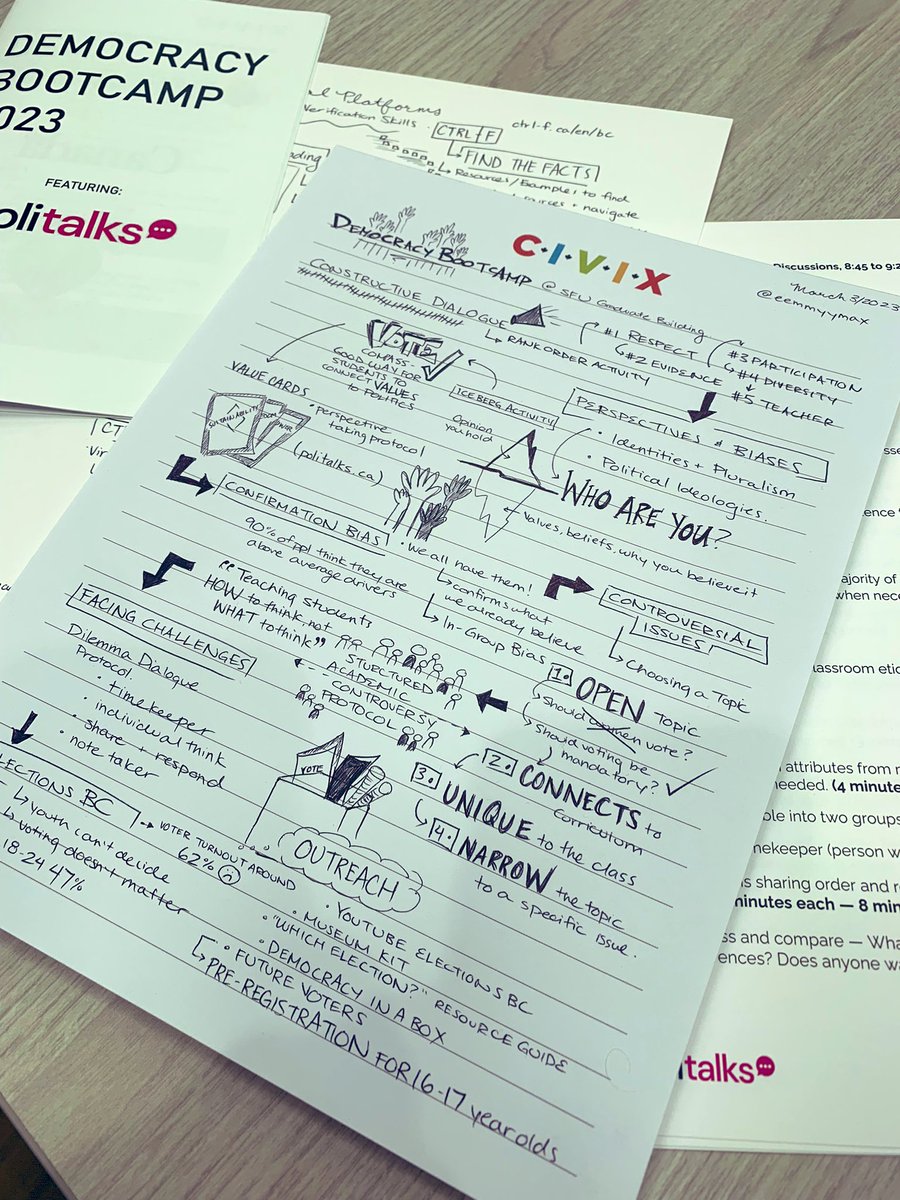 DEMOCRACY
BOOTCAMP
2023
FEATURING:
olitalks
al Platforms
Verification Skills
CTRL+F
ctrl-f.ca/en/bc
FIND THE FACTS
Resources/Examples to find
+ navigate
DEMOCRACY BOOTCAMP @ SFU Graduate Building
C·I·V·I·X
March 3/2023
@eemmyymax
CONSTRUCTIVE DIALOGUE
RANK ORDER ACTIVITY
#1 RESPECT
#2 EVIDENCE
#3 PARTICIPATION
#4 DIVERSITY
#5 TEACHER
VOTE
COMPASS-
GOOD WAY FOR
STUDENTS TO
CONNECT VALUES
to POLITICS
VALUE CARDS
SUSTAINABILITY
• perspective
taking protocol
(politalks.ca)
ICEBERG ACTIVITY
Opinion
you hold
Values, beliefs, why you believe it
PERSPECTIVES & BIASES
• Identities + Pluralism
• Political Ideologies.
WHO ARE YOU?
CONFIRMATION BIAS
90% of ppl think they are
above average drivers
• we all have them!
confirms what
we already believe
In-Group Bias
"Teaching students
HOW to think, not
WHAT to think"
CONTROVERSIAL
ISSUES
Choosing a Topic
1. OPEN Topic
Should women vote?
Should voting be
mandatory?
2. CONNECTS to
curriculum
3. UNIQUE to the class
4. NARROW the topic
to a specific issue.
STURCTURED
ACADEMIC
CONTROVERSY
PROTOCOL
FACING CHALLENGES
Dilemma Dialogue
Protocol
• timekeeper
• individual think
• share + respond
• note taker
ELECTIONS BC
VOTER TURNOUT AROUND
62%
youth can't decide
voting doesn't matter
18-24 47%
VOTE
OUTREACH
• YOUTUBE ELECTIONS BC
• MUSEUM KIT
• "WHICH ELECTION?" RESOURCE GUIDE
• DEMOCRACY IN A BOX
• FUTURE VOTERS
PRE-REGISTRATION FOR 16-17 year olds
Discussions, 8:45 to 9:2
ajority of
when nece
lassroom etiq
attributes from
needed. (4 minute
ple into two groups
mekeeper (person w
s sharing order and r
minutes each — 8 min
ss and compare — Wha
ences? Does anyone wa
litalks